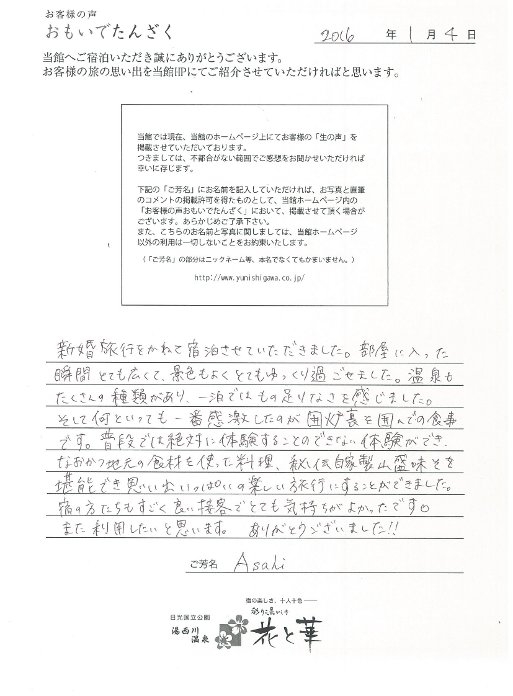 お客様の声
おもいでたんざく
2016 年 1 月 4 日
当館へご宿泊いただき誠にありがとうございます。
お客様の旅の思い出を当館HPにてご紹介させていただければと思います。
当館では現在、当館のホームページ上にてお客様の「生の声」を
掲載させていただいております。
つきましては、不都合がない範囲でご感想をお聞かせいただければ
幸いに存じます。
下記の「ご芳名」にお名前を記入していただければ、お写真と直筆
のコメントの掲載許可を得たものとして、当館ホームページ内の
「お客様の声おもいでたんざく」において、掲載させて頂く場合が
ございます。あらかじめご了承下さい。
また、こちらのお名前と写真に関しましては、当館ホームページ
以外の利用は一切しないことをお約束いたします。
（「ご芳名」の部分はニックネーム等、本名でなくてもかまいません。）
http://www.yunishigawa.co.jp/
新婚旅行をかねて宿泊させていただきました。部屋に入った
瞬間とても広くて、景色もよくとてもゆっくり過ごせました。温泉も
たくさんの種類があり、一泊ではもの足りなさを感じました。
そして何といっても一番感激したのが囲炉裏を囲んでの食事
です。普段では絶対に体験することのできない体験ができ、
なおかつ地元の食材を使った料理、秘伝自家製山盛味そを
堪能でき思い出いっぱいの楽しい旅行にすることができました。
宿の方たちもすごく良い接客でとても気持ちがよかったです。
また利用したいと思います。 ありがとうございました!!
ご芳名 Asahi
宿の楽しさ、十人十色
日光国立公園
湯西川
温泉
花と華